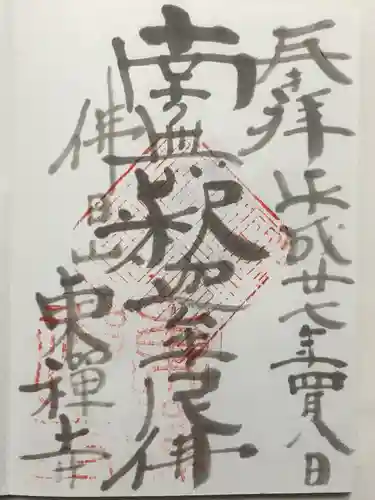 拝 平成廿七年四月八日
南無釈迦牟尼佛
佛日山
東禪寺